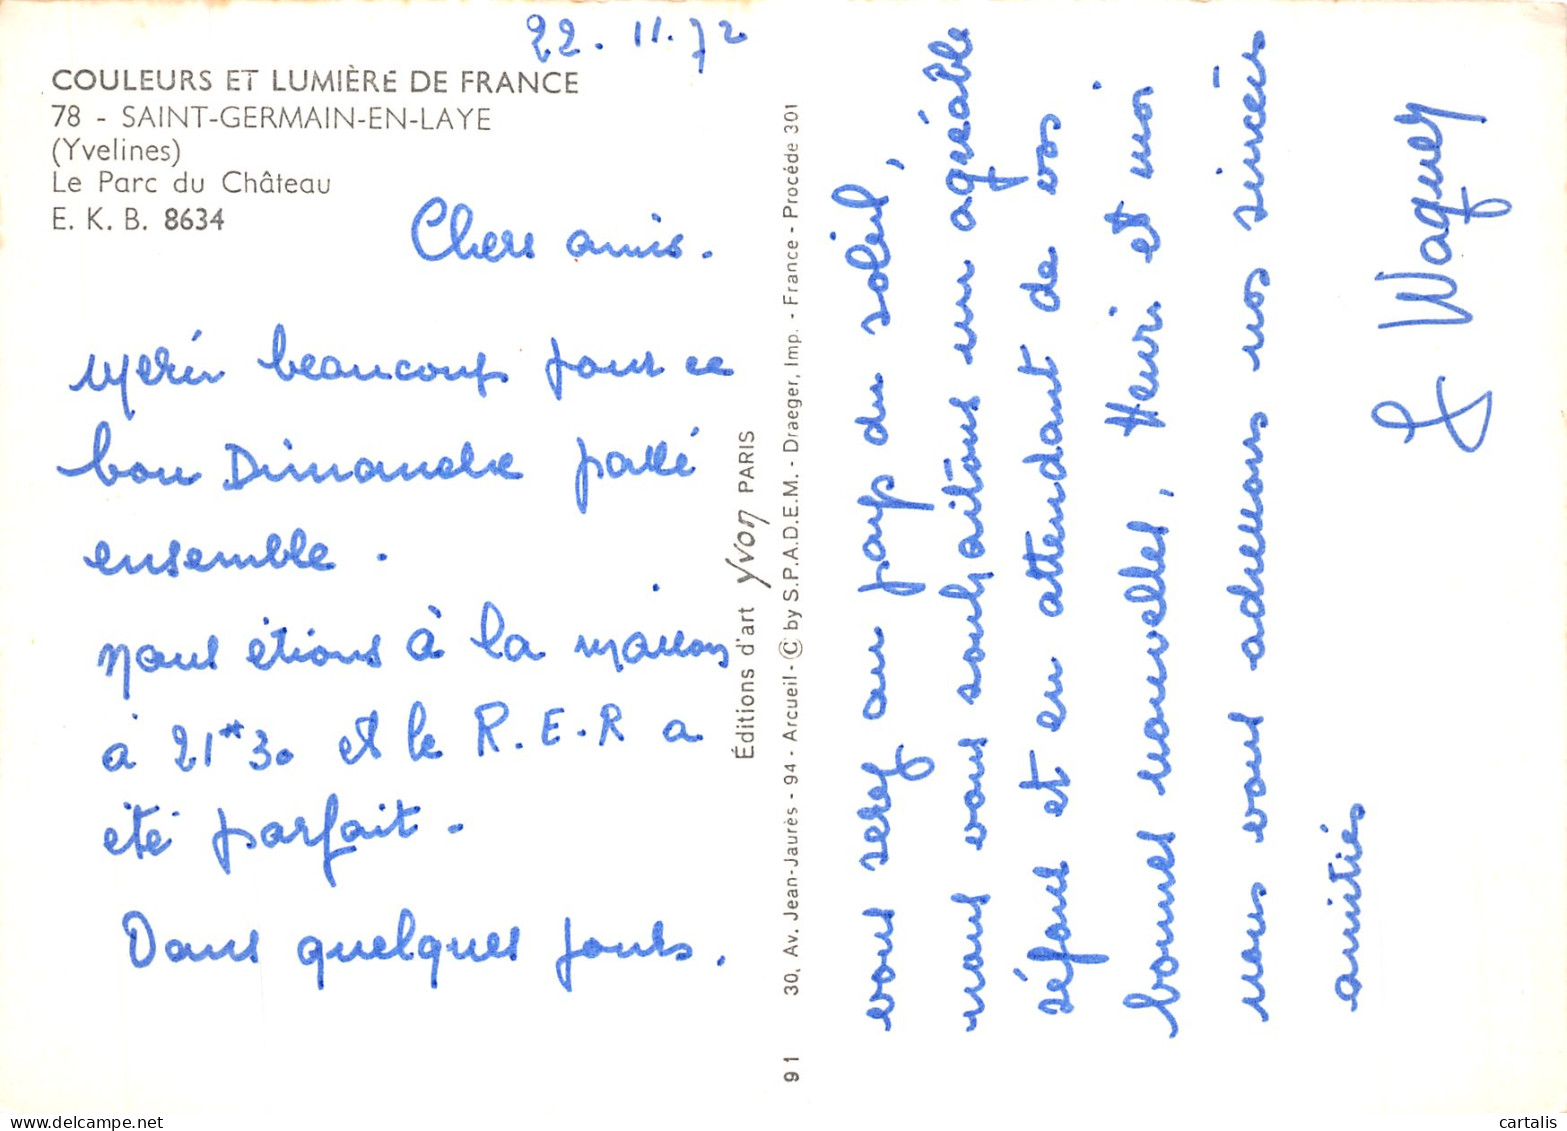 22.11.72
COULEURS ET LUMIÈRE DE FRANCE
78 - SAINT-GERMAIN-EN-LAYE
(Yvelines)
Le Parc du Château
E. K. B. 8634
Chers amis.
Merci beaucoup pour ce
bon Dimanche passé
ensemble.
nous étions à la maison
à 21h30 et le R.E.R a
été parfait.
Dans quelques jours.
Éditions d'art Yvon PARIS
91 30, Av. Jean-Jaurès - 94 - Arcueil - © by S.P.A.D.E.M. - Draeger, Imp. - France - Procédé 301
vous serez au pays du soleil,
nous vous souhaitons un agréable
séjour et en attendant de vos
bonnes nouvelles, Henri et moi
nous vous adressons nos sincères
amitiés
Waquez
cartalis